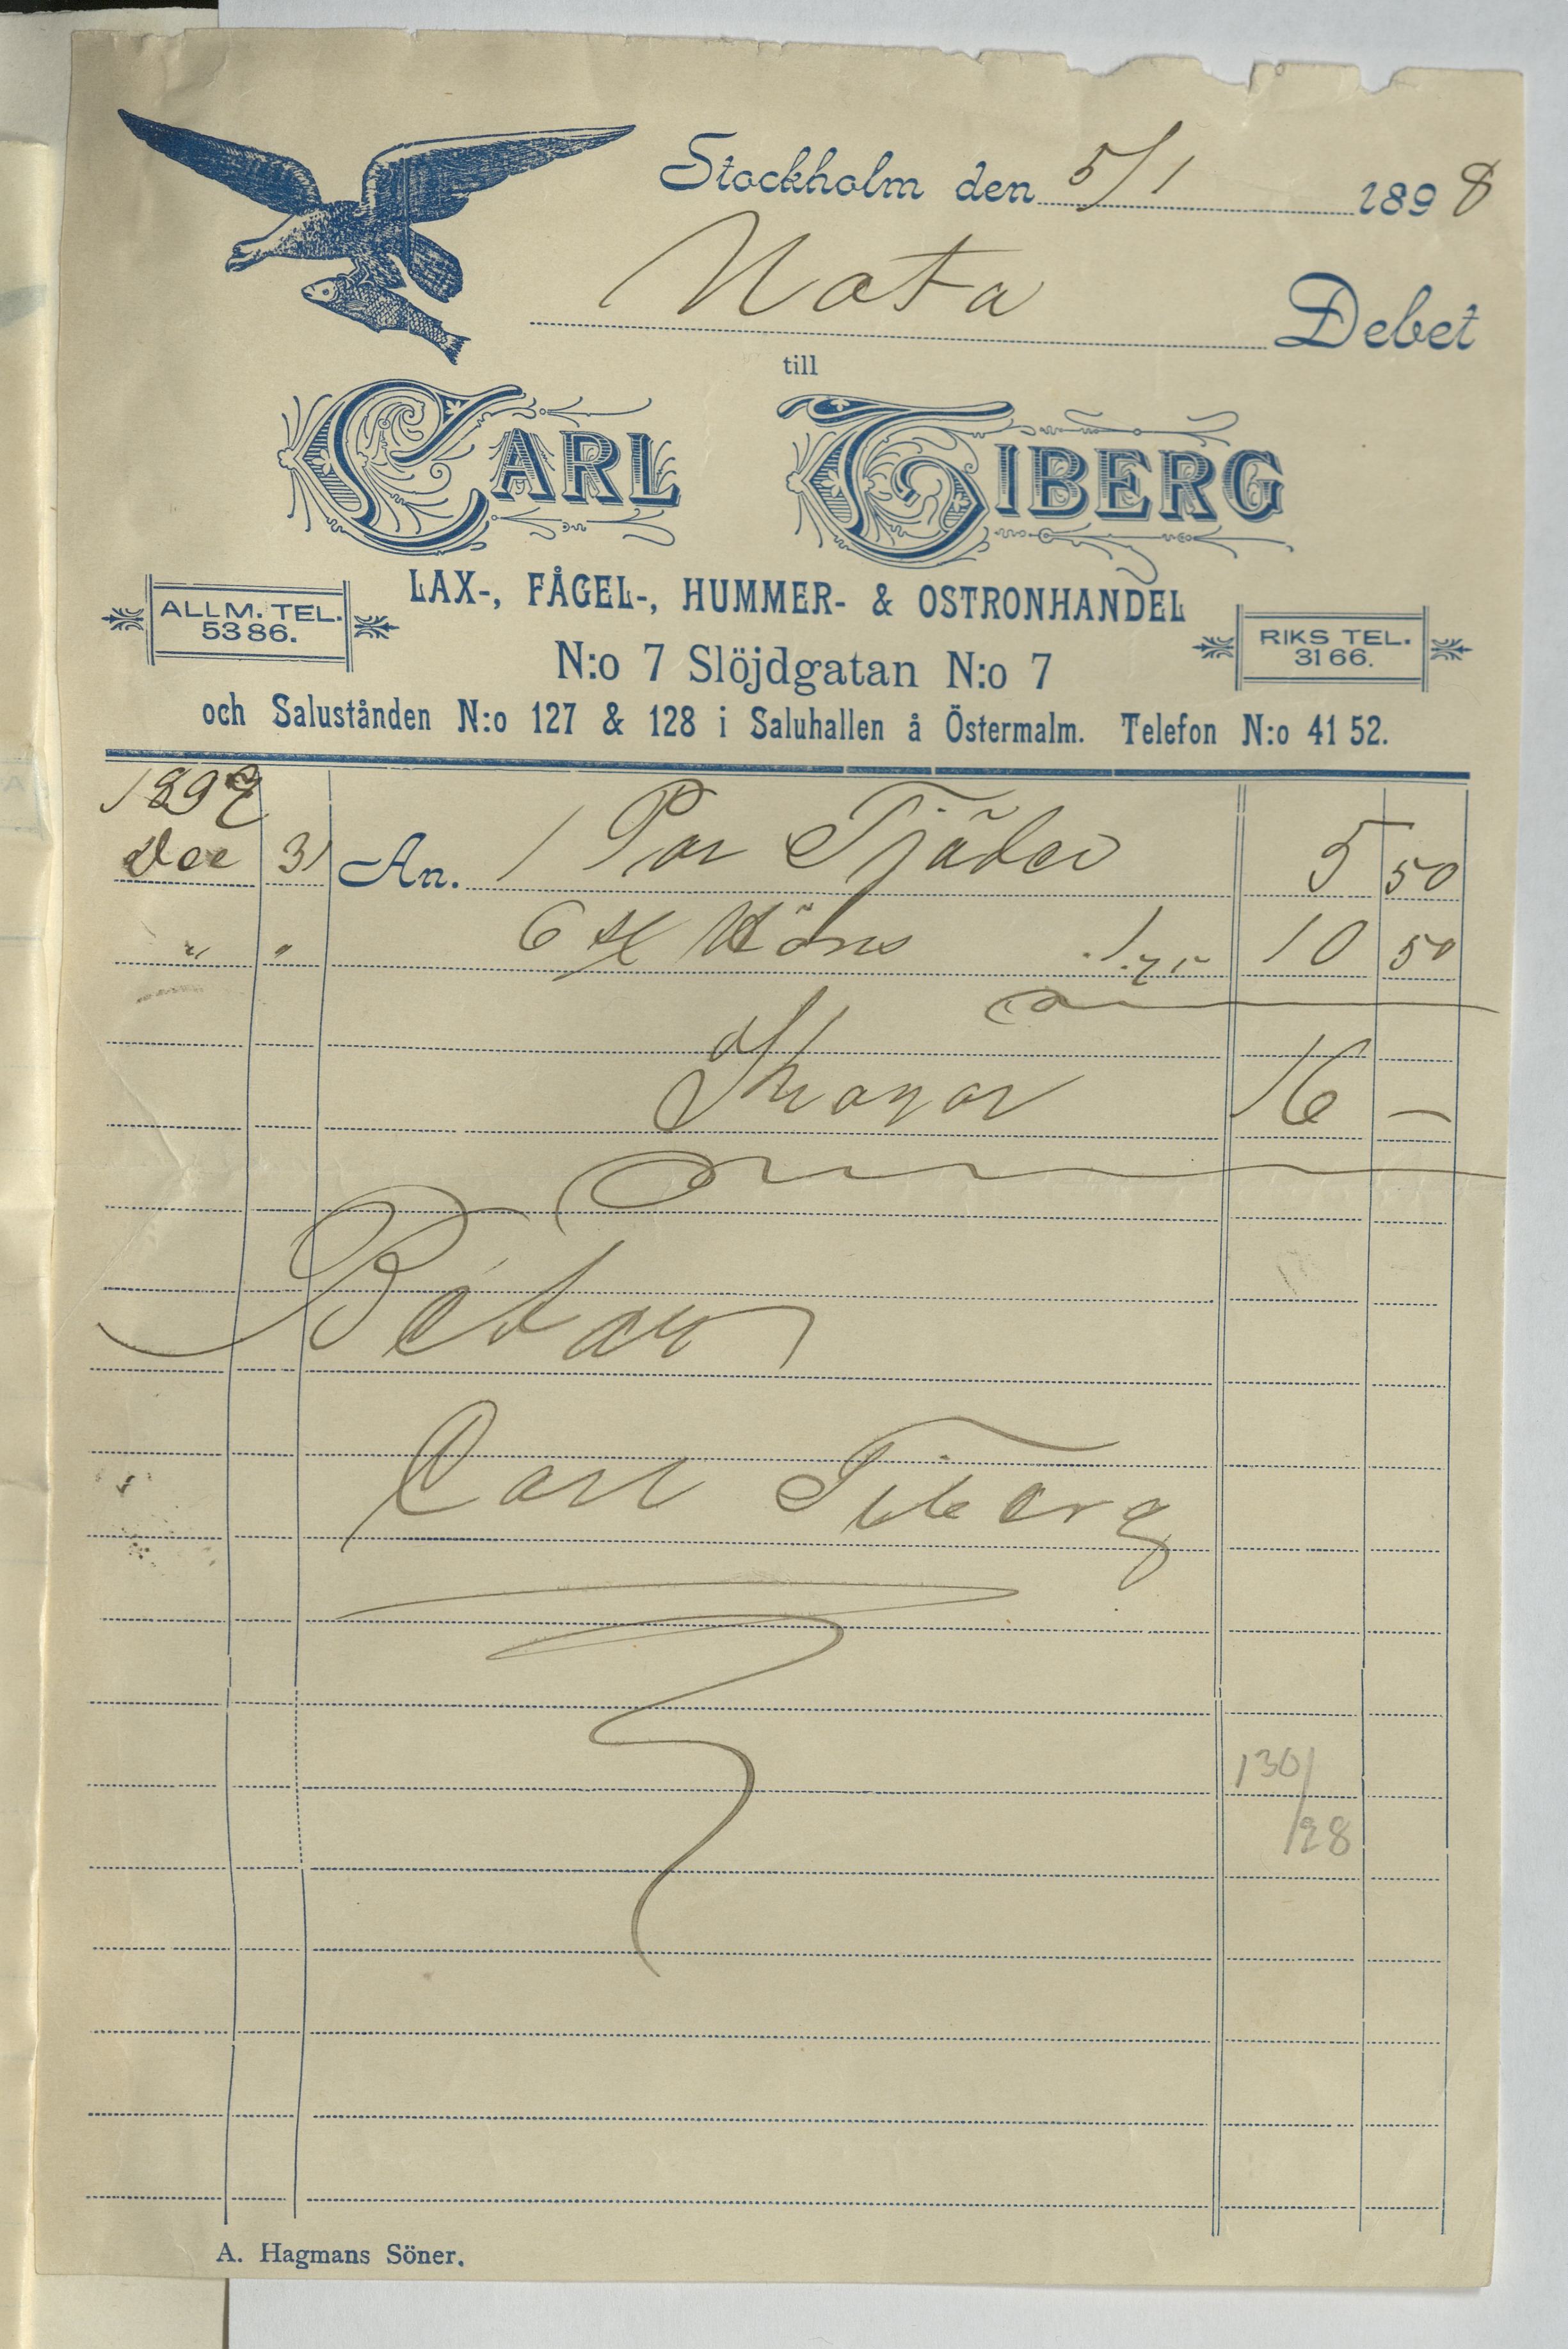 Stockholm den 5/1 1898
Nota Debet
till
CARL TIBERG
LAX-, FÅGEL-, HUMMER- & OSTRONHANDEL
ALLM. TEL. 5386.
RIKS TEL. 3166.
N:o 7 Slöjdgatan N:o 7
och Saluståndén N:o 127 & 128 i Saluhallen å Östermalm. Telefon N:o 41 52.
1897
Dec 31 An. 1 Par Tjäder 5 50
" " 6 st Höns 1.75 10 50
Kronor 16 —
Betalt
Carl Tiberg
130/28
A. Hagmans Söner.